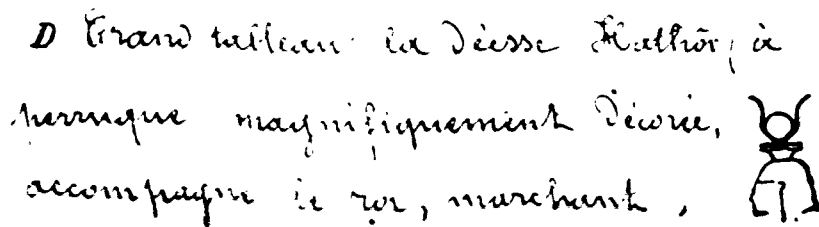 D Grand tableau la déesse Hathôr, à
perruque magnifiquement décorée,
accompagne le roi, marchant,